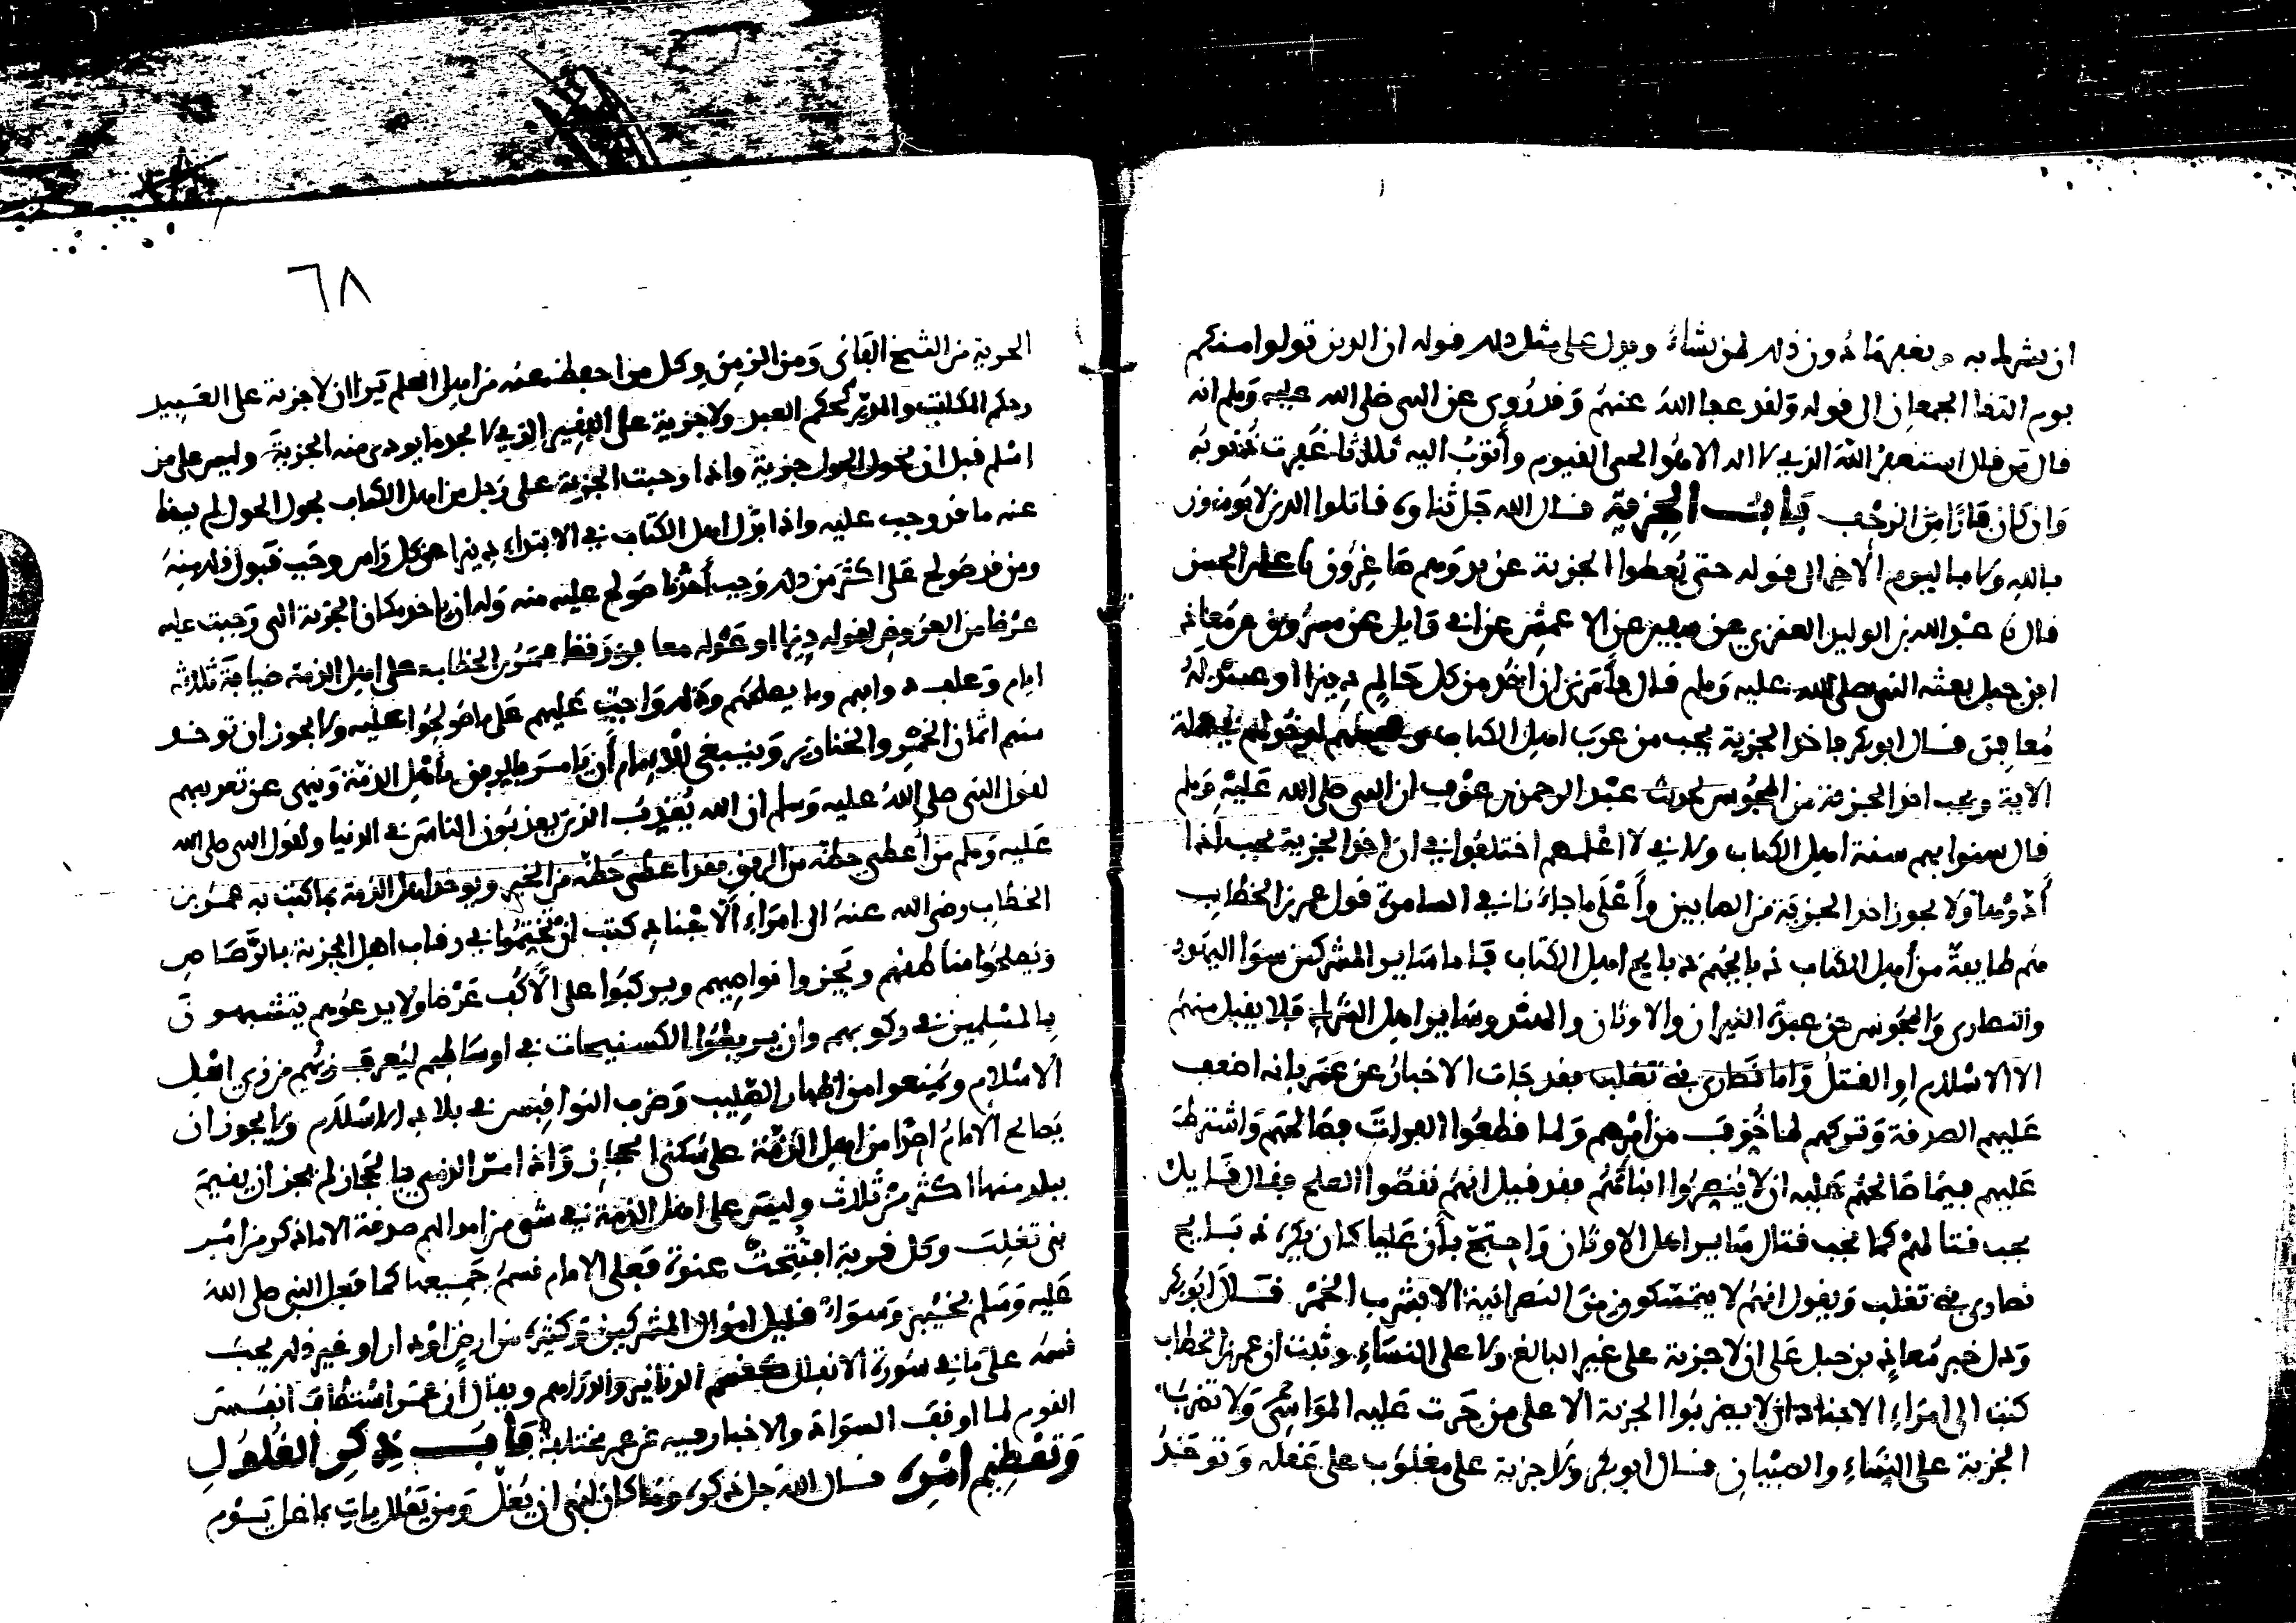 ان يشرك به ويغفر ما دون ذلك لمن يشاء ويدل على مثل ذلك قوله ان الذين تولوا منكم
يوم التقا الجمعان الى قوله ولقد عفا الله عنهم وقد روى عن النبى صلى الله عليه وسلم انه
قال من قال استغفر الله الذي لا اله الا هو الحى القيوم وأتوب اليه ثلاثا غفرت ذنوبه
وان كان فارا من الزحف باب الجزية قال الله جل ثناوه قاتلوا الذين لا يومنون
بالله ولا باليوم الاخر الى قوله حتى يعطوا الجزية عن يد وهم صاغرون على الحسن
قال نا عبد الله بن الوليد العدني عن سفين عن الاعمش عن ابي وايل عن مسروق عن معاذ
ابن جبل بعثه النبى صلى الله عليه وسلم قال فأمرني ان اخذ من كل حالم دينرا او عدله
معافر قال ابو بكر فاخذ الجزية يجب من عرب اهل الكتاب لدخولهم في جملة
الاية ويجب اخذ الجزية من المجوس لحديث عبد الرحمن بن عوف ان النبى صلى الله عليه وسلم
قال سنوا بهم سنة اهل الكتاب ولاني لا اعلمهم اختلفوا في ان اخذ الجزية يجب اذا
أدوها ولا يجوز اخذ الجزية من الصابين وأعلى ما جاءنا في السامرة قول عمر بن الخطاب
هم طايفة من أهل الكتاب ذبايحهم ذبايح اهل الكتاب فاما ساير المشركين سوا اليهود
والنصارى والمجوس من عبدة النيران والاوثان والهند وساير اهل الشرك فلا يقبل منهم
الا الاسلام او القتل واما نصارى بني تغلب فقد جات الاخبار عن عمر بانه اضعف
عليهم الصدقة وتركهم لما خوف من أمرهم ولما قطعوا الفرات فصالحهم واشترط
عليهم فيما صالحهم عليه ان لا ينصروا ابناءهم فقد قيل انهم نقضوا الصلح فقال قايل
يجب قتالهم كما يجب قتال ساير اهل الاوثان واحتج بأن عليا كان يكره ذبايح
نصارى بني تغلب ويقول انهم لا يتمسكون من النصرانية الا بشرب الخمر قال ابو بكر
ودل خبر معاذ بن جبل على ان لا جزية على غير البالغ ولا على النساء وثبت ان عمر بن الخطاب
كتب الى امراء الاجناد ان لا يضربوا الجزية الا على من جرت عليه المواسى ولا تضرب
الجزية على النساء والصبيان قال ابو بكر ولا جزية على مغلوب على عقله وتوخذ
٦٨
الجزية من الشيخ الفانى ومن الزمن وكل من احفظ عنه من اهل العلم يرا ان لا جزية على العبيد
وحكم المكاتب والمدبر كحكم العبد ولا جزية على الفقير الذي لا يجد ما يودى منه الجزية وليس على من
اسلم قبل ان يحول الحول جزية واذا وجبت الجزية على رجل من اهل الكتاب بحول الحول لم يسقط
عنه ما قد وجب عليه واذا بذل اهل الكتاب في الابتداء دينرا عن كل راس وجب قبول ذلك منه
ومن قد صولح على اكثر من ذلك وجب أخذ ما صولح عليه منه وله ان ياخذ مكان الجزية التى وجبت عليه
عرضا من العروض لقوله دينرا او عدله معافر وقد وظف عمر بن الخطاب على اهل الذمة ضيافة ثلاثة
ايام وعلف دوابهم وما يصلحهم وذلك واجب عليهم على ما صولحوا عليه ولا يجوز ان توخذ
منهم اثمان الخمر والخنازير وينبغى للامام أن يامر بالرفق بأهل الذمة وينهى عن تعذيبهم
لقول النبى صلى الله عليه وسلم ان الله يعذب الذين يعذبون الناس في الدنيا ولقول النبى صلى الله
عليه وسلم من أعطى حظه من الرفق فقد اعطى حظه من الخير ويوخذ اهل الذمة بما كتب به عمر بن
الخطاب رضى الله عنه الى امراء الأجناد كتب ان يختموا في رقاب اهل الجزية بالرصاص
ويصلحوا مناطقهم ويجزوا نواصيهم ويركبوا على الأكف عرضا ولا يدعوهم يتشبهون
بالمسلمين في ركوبهم وان يربطوا الكستيجات في اوساطهم ليعرف زيهم من زي اهل
الاسلام ويمنعوا من اظهار الصليب وضرب النواقيس في بلاد الاسلام ولا يجوز ان
يصالح الامام احدا من اهل الذمة على سكنى الحجاز واذا مر الذمي بالحجاز لم يجز ان يقيم
ببلد منها اكثر من ثلاث وليس على اهل الذمة في شى من اموالهم صدقة الا ما ذكر من امر
بنى تغلب وكل قرية افتتحت عنوة فعلى الامام قسم جميعها كما فعل النبى صلى الله
عليه وسلم بخيبر وسواء قليل اموال المشركين وكثيره من ارض او دار او غير ذلك يجب
قسمه على ما في سورة الانفال كقسم الدنانير والدراهم ويقال أن عمر استطاب انفس
القوم لما اوقف السواد والاخبار فيه عن عمر مختلفة باب ذكر الغلول
وتعظيم امره قال الله جل ذكره وما كان لنبى ان يغل ومن يغلل يات بما غل يوم